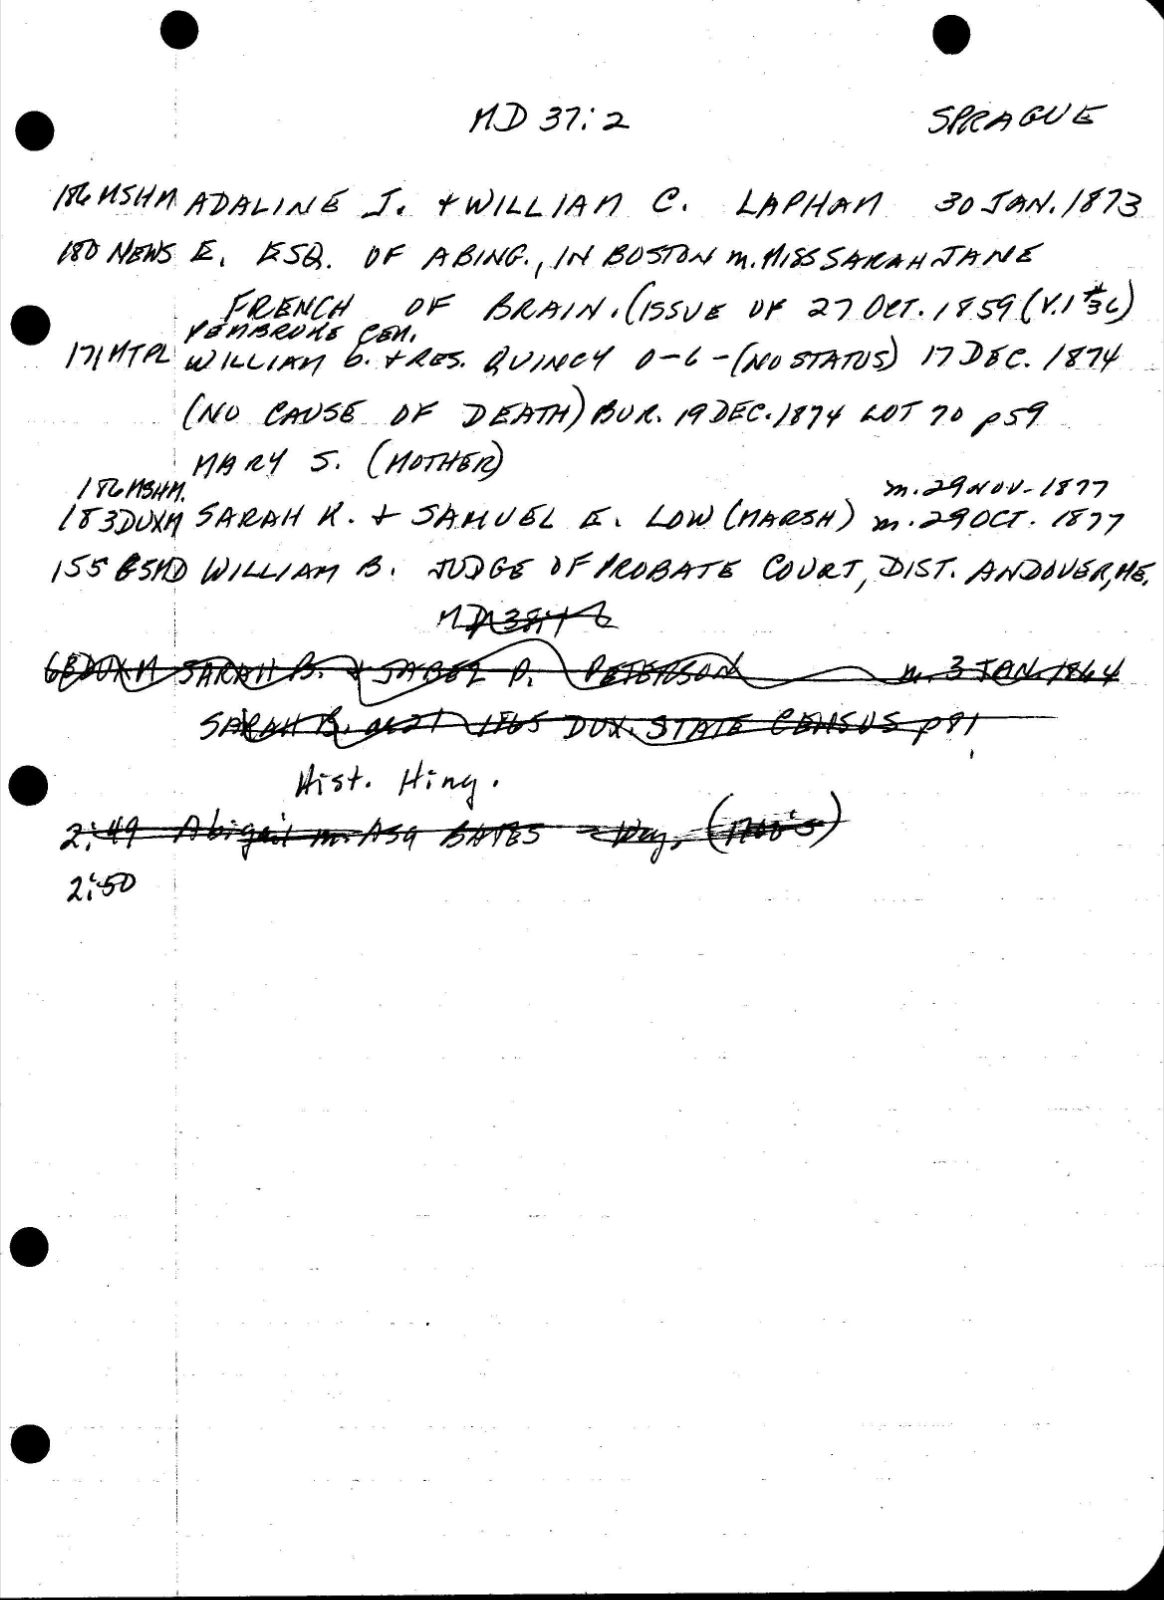 MD 37:2 SPRAGUE
186 MSHM ADALINE J. + WILLIAM C. LAPHAM 30 JAN. 1873
180 NEWS E. ESQ. OF ABING., IN BOSTON m. MISS SARAH JANE
FRENCH OF BRAIN. (ISSUE OF 27 OCT. 1859 (V.1 #36)
PEMBROKE CEM.
171 MTPL WILLIAM G. + RES. QUINCY 0-6-(NO STATUS) 17 DEC. 1874
(NO CAUSE OF DEATH) BUR. 19 DEC. 1874 LOT 70 p59
MARY S. (MOTHER)
186 MSHM. m. 29 NOV. 1877
183 DUXM SARAH K. + SAMUEL E. LOW (MARSH) m. 29 OCT. 1877
155 WILLIAM B. JUDGE OF PROBATE COURT, DIST. ANDOVER, ME.
MD 38:1
68 DUXM SARAH B. + JABEZ P. PETERSON m. 3 JAN. 1864
SARAH B. ae 21 1865 DUX. STATE CENSUS p 91
Hist. Hing.
2:49 Abigail m. Asa BATES = Wey. (1700's)
2:50